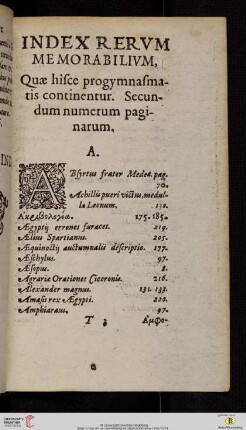 INDEX RERVM
MEMORABILIVM,
Quæ hisce progymnasma-
tis continentur. Secun-
dum numerum pagi-
narum.
A.
ABsyrtus frater Medeæ. pag.
70.
Achillis pueri victus, medul-
la Leonum. 138.
Ακριβολογία. 175. 185.
Ægyptij errones furaces. 219.
Ælius Spartianus. 205.
Æquinoctij auctumnalis descriptio. 177.
Æschylus. 97.
Æsopus. 2.
Agraria Orationes Ciceronis. 216.
Alexander magnus. 131. 133.
Amasis rex Ægypti. 220.
Amphiaraus. 97.
T 3 Αμφο-